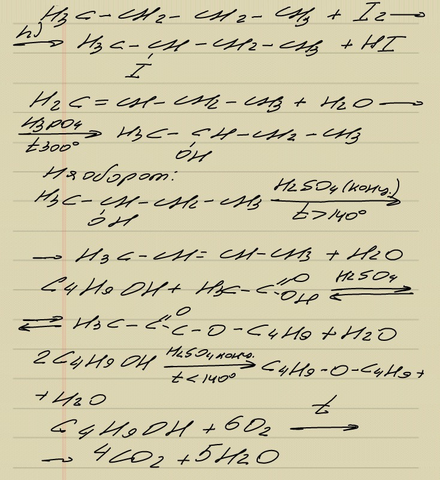 H₃C – CH₂ – CH₂ – CH₃ + I₂ ⟶
hν ⟶ H₃C – CH – CH₂ – CH₃ + HI
I
H₂C = CH – CH₂ – CH₃ + H₂O ⟶
H₃PO₄
t 300° ⟶ H₃C – CH – CH₂ – CH₃
OH
Наоборот:
H₃C – CH – CH₂ – CH₃ H₂SO₄ (конц.) ⟶
OH t > 140°
⟶ H₃C – CH = CH – CH₃ + H₂O
C₄H₉OH + H₃C – C =O OH H₂SO₄ ⇄
⇄ H₃C – C =O – O – C₄H₉ + H₂O
2C₄H₉OH H₂SO₄ конц. t < 140° ⟶ C₄H₉ – O – C₄H₉ +
+ H₂O
C₄H₉OH + 6O₂ t ⟶
⟶ 4CO₂ + 5H₂O